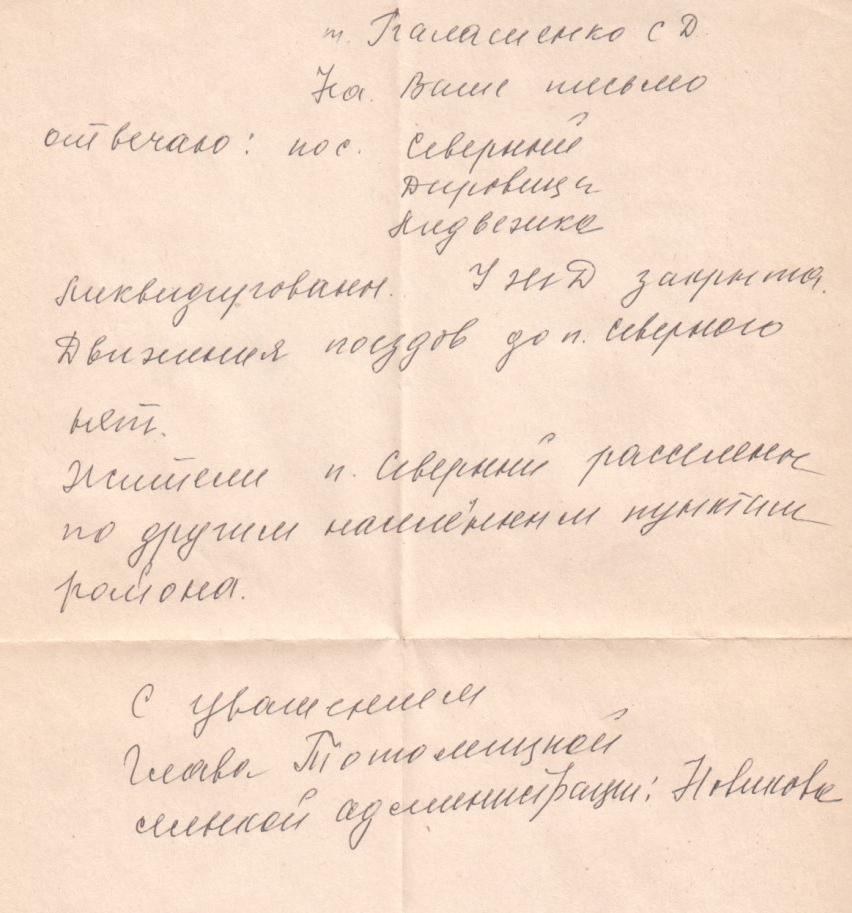 т. Калашенко С Д.
На Ваше письмо
отвечаю: пос. Северный
Дировица
Медвежка
ликвидированы. УЖД закрыта.
Движения поездов до п. Северного
нет.
Жители п. Северный расселены
по другим населённым пунктам
района.
С уважением
Глава Тотомицкой
сельской администрации: Новикова